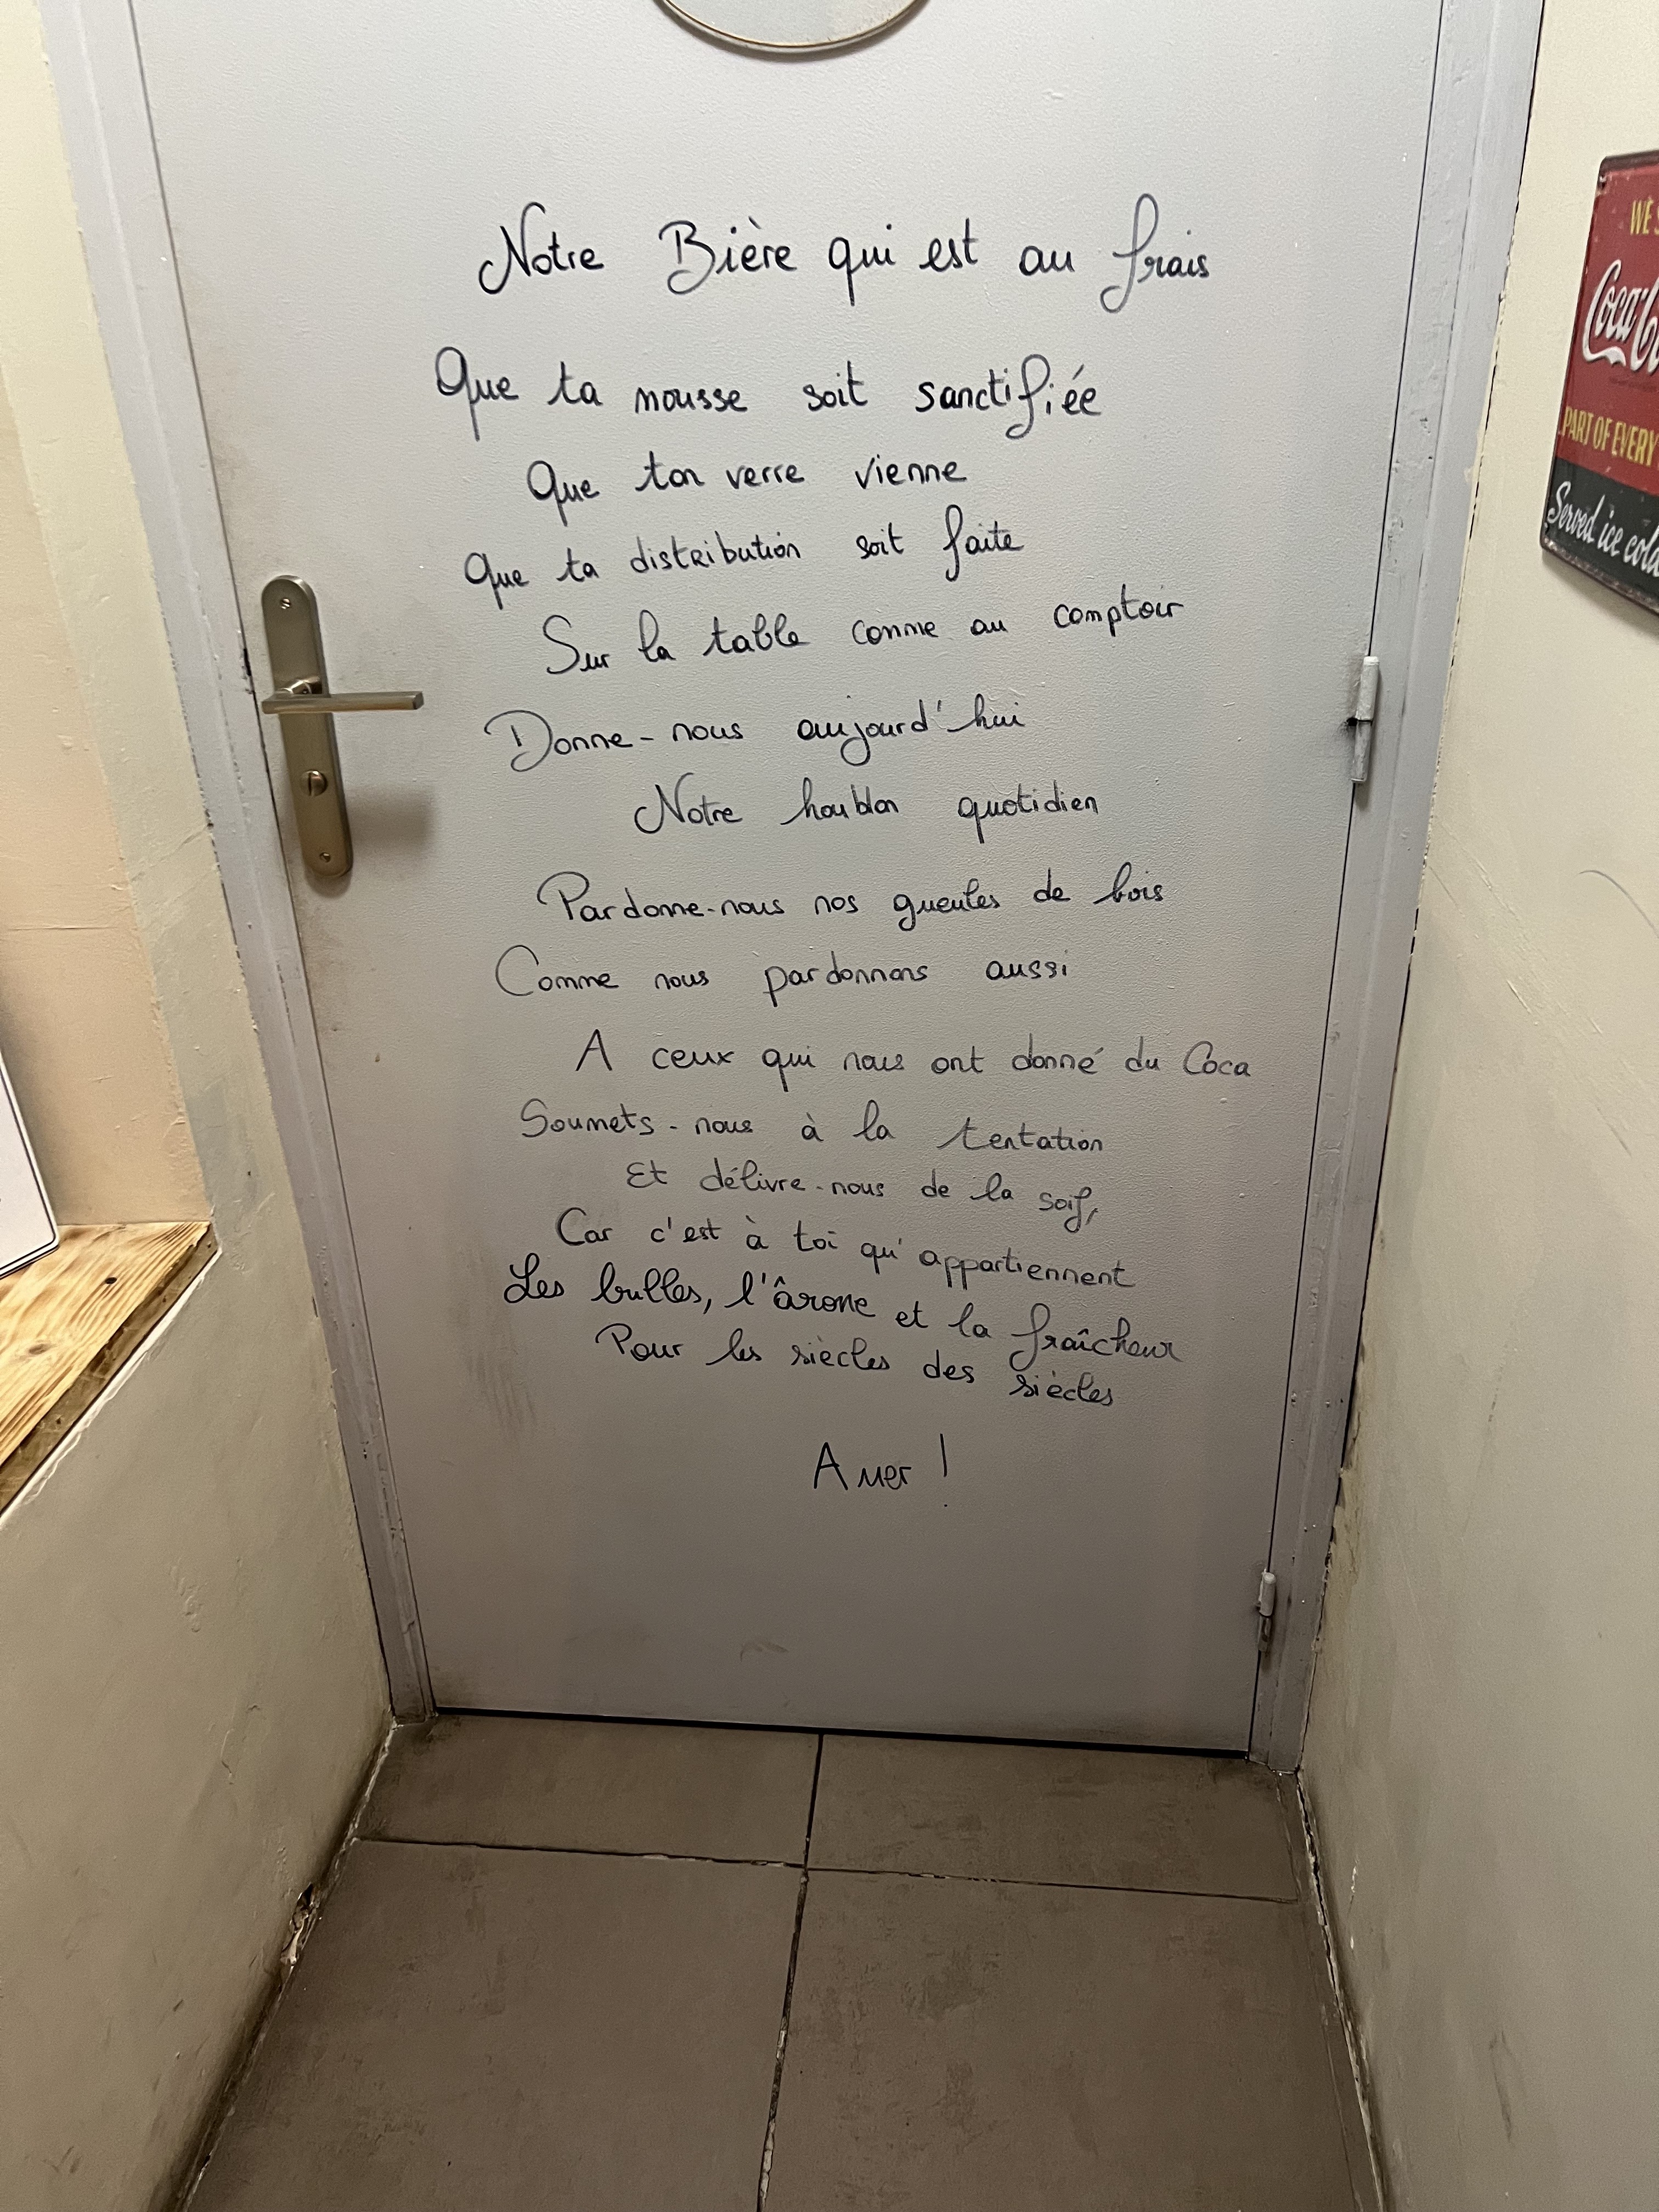 Notre Bière qui est au frais
Que ta mousse soit sanctifiée
Que ton verre vienne
Que ta distribution soit faite
Sur la table comme au comptoir
Donne-nous aujourd'hui
Notre houblon quotidien
Pardonne-nous nos gueules de bois
Comme nous pardonnons aussi
A ceux qui nous ont donné du Coca
Soumets-nous à la tentation
Et délivre-nous de la soif,
Car c'est à toi qu'appartiennent
Les bulles, l'arôme et la fraîcheur
Pour les siècles des siècles
Amer !
WE
Coca-C
PART OF EVERY
Served ice cold